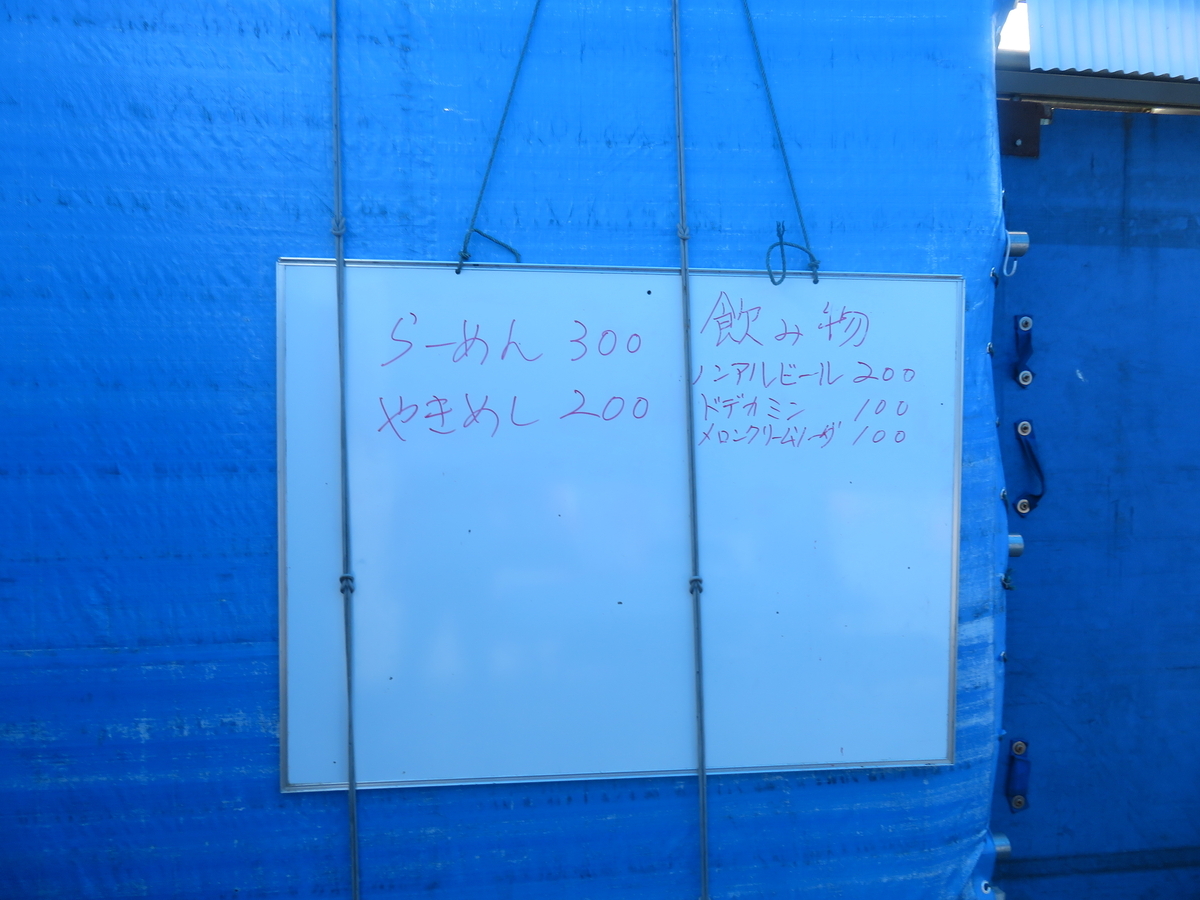 らーめん 300
やきめし 200
飲み物
ノンアルビール 200
ドデカミン 100
メロンクリームソーダ 100